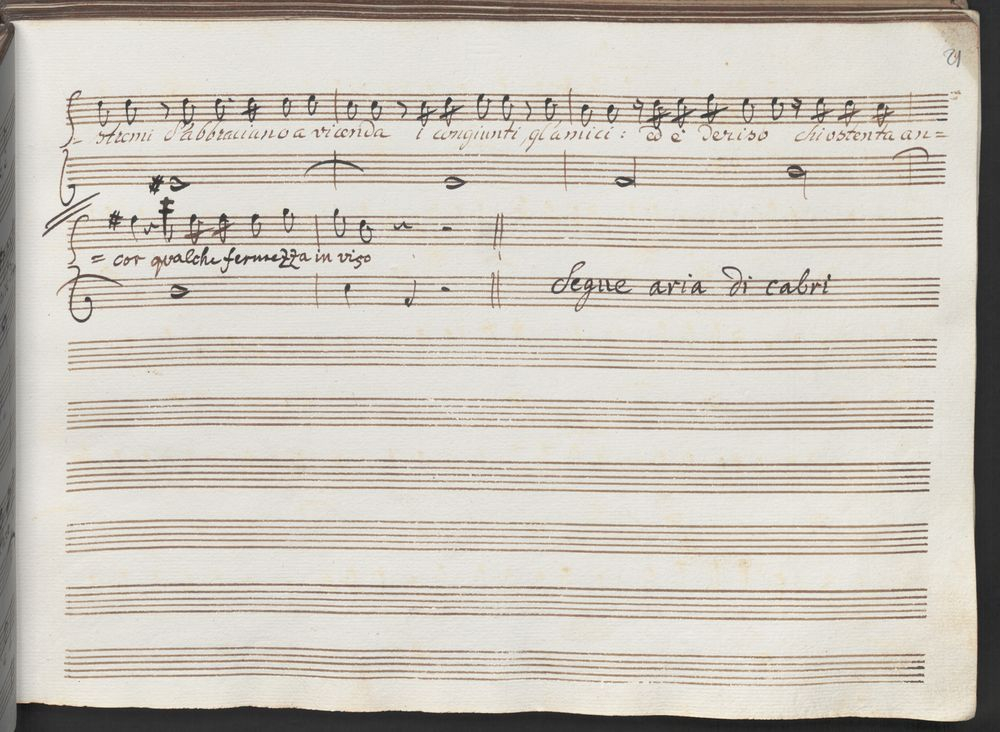 21
= stremi s'abbracciano a vicenda i congiunti, gl'amici: ed è deriso chi ostenta an=
= cor qualche fermezza in viso
Segue aria di cabri